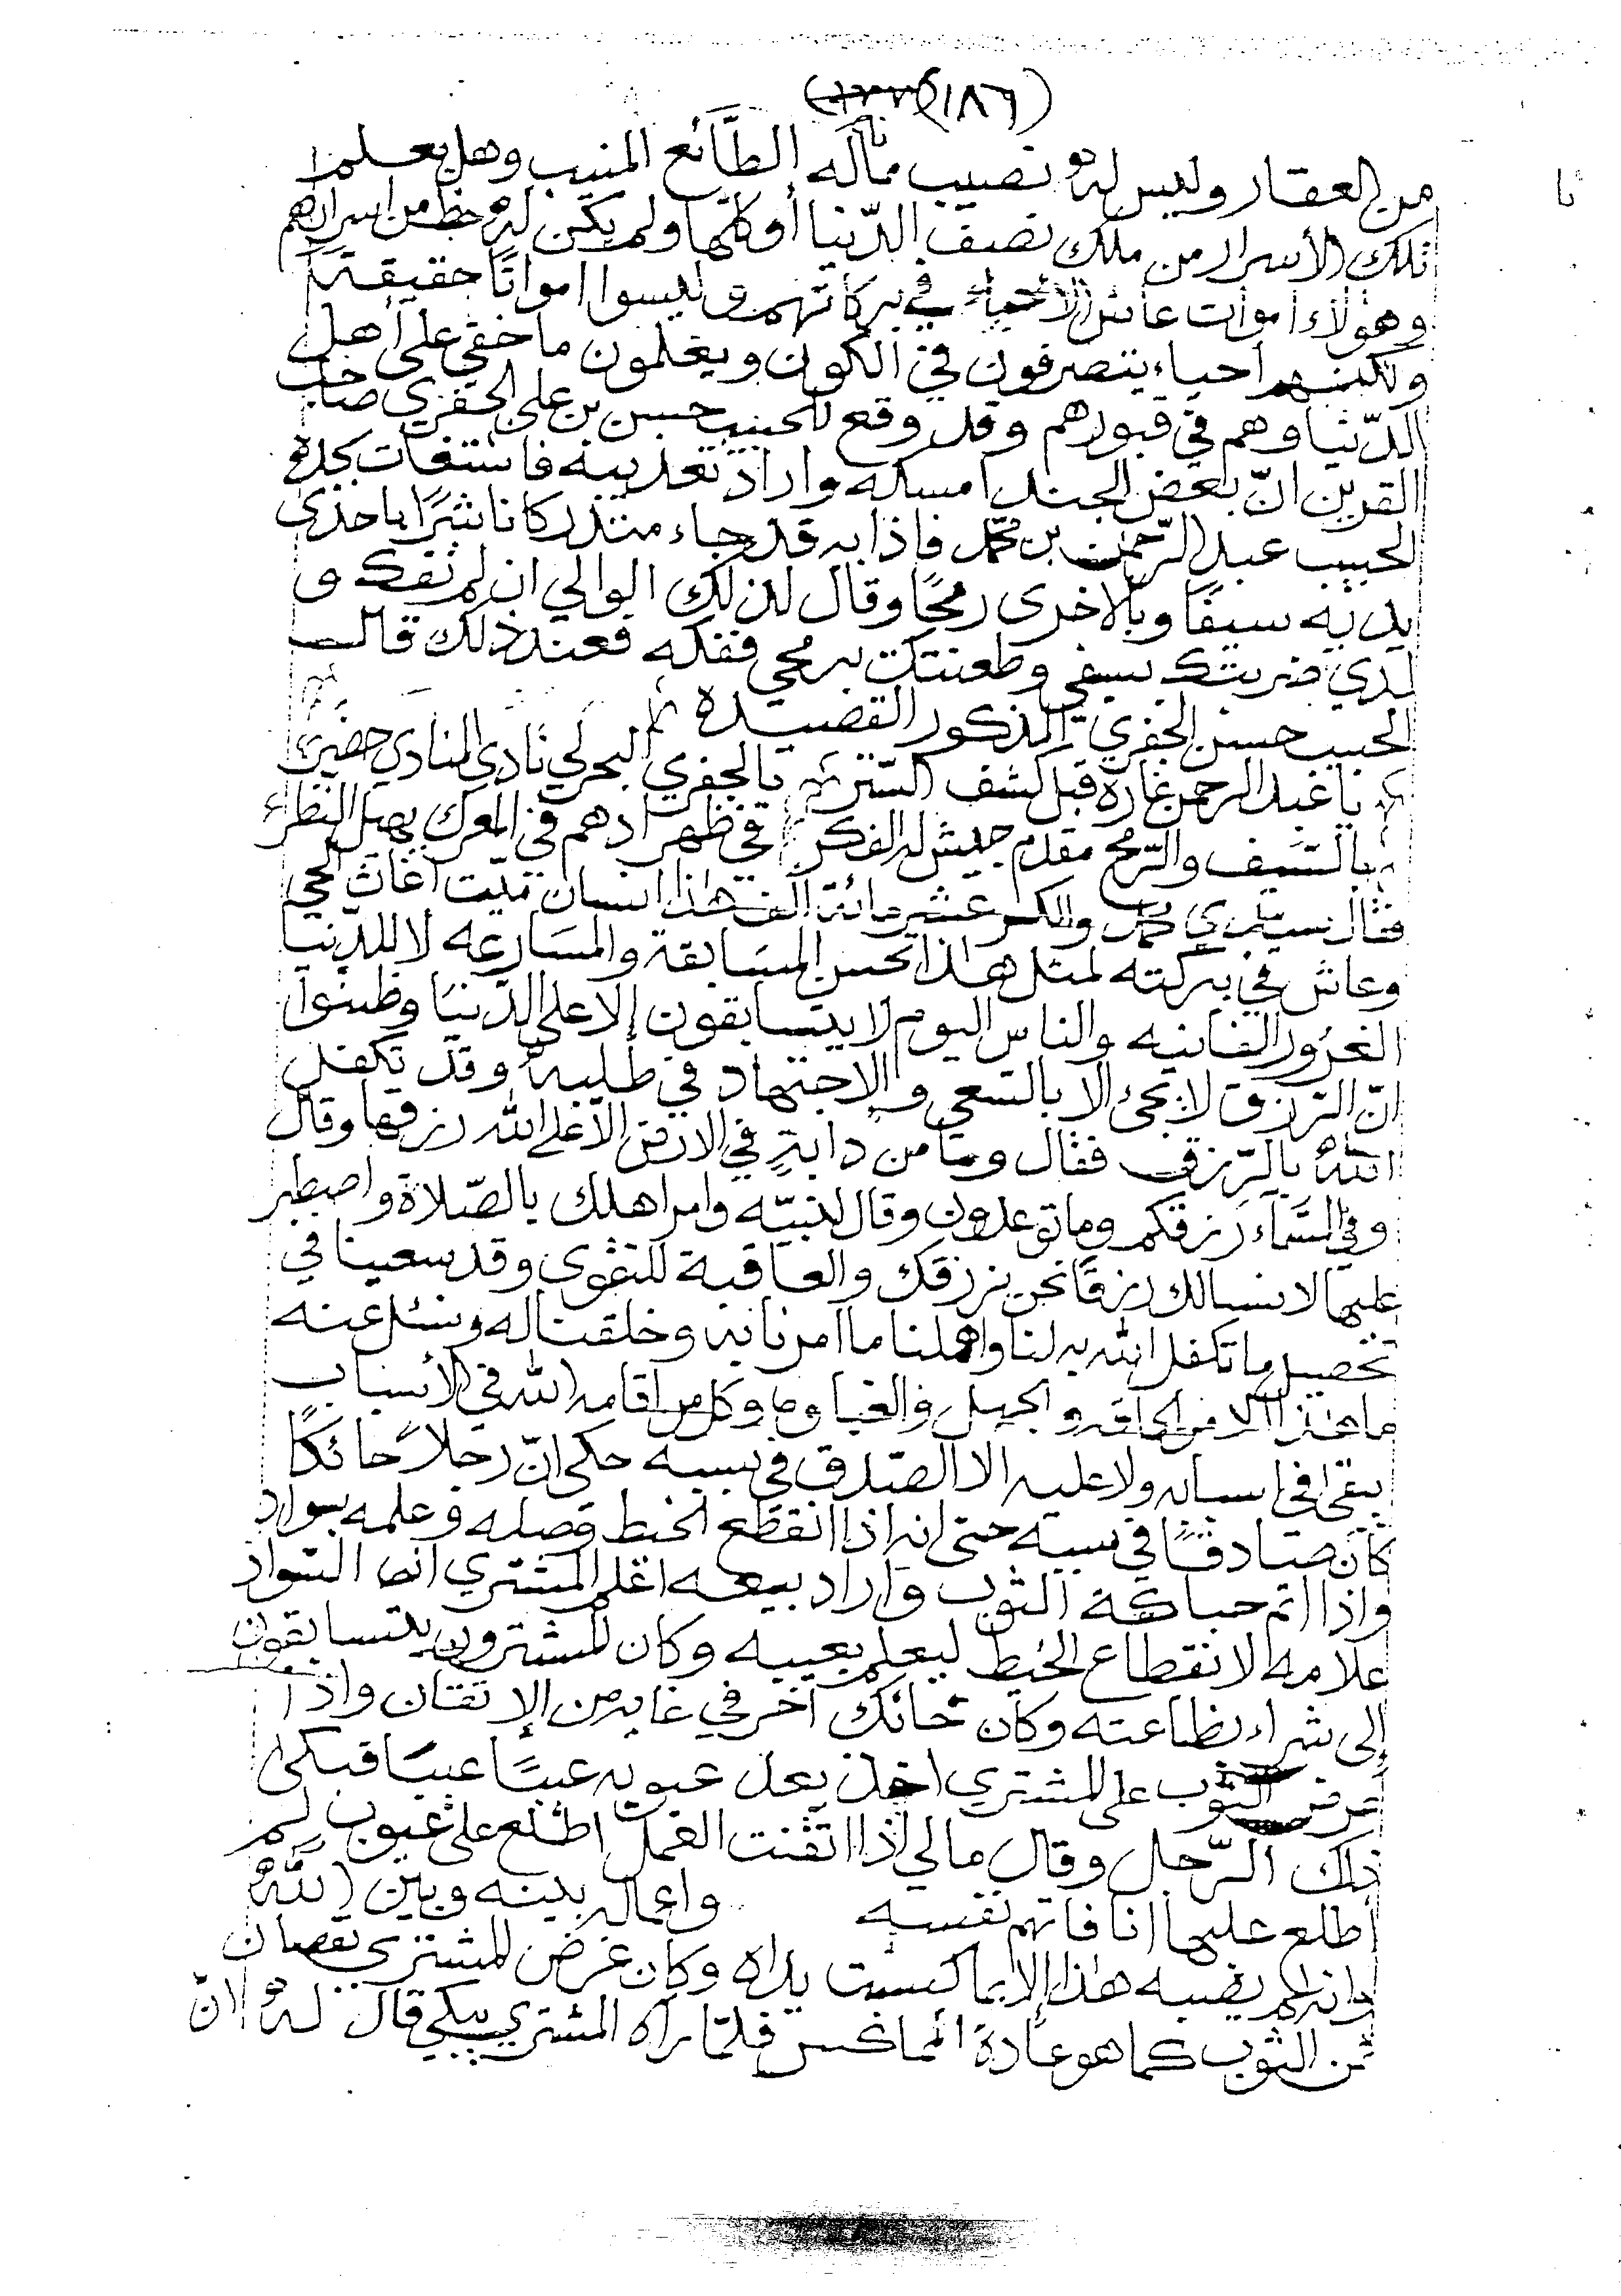 (١٨٦)
من العقار وليس له نصيب مما ناله الطائع المنيب وهل يعلم
تلك الأسرار من ملك نصف الدّنيا أو كلّها ولم يكن له حظ من اسرارهم
وهؤلاء أموات عاش الأحياء في بركاتهم وليسوا امواتًا حقيقة
ولكنهم احياء يتصرفون في الكون ويعلمون ما خفي على أهل
الدّنيا وهم في قبورهم وقد وقع للحبيب حسين بن علي الجفري صاحب
القرين انّ بعض الجند امسكه واراد تعذيبه فاستغاث بجده
الحبيب عبد الرّحمن بن محمد فاذا به قد جاء متدركا ناشرًا باحدى
يديه سيفًا وبالاخرى رمحًا وقال لذلك الوالي ان لم تفك و
لدي ضربتك بسيفي وطعنتك برمحي ففكه فعند ذلك قال
الحبيب حسين الجفري المذكور القصيدة
يا عبد الرحمن غاره قبل كشف الستر يا الجفري البحر لي نادي المنادي حضر
بالسّيف والرّمح مقدم جيش له الفكر في ظهر ادهم في المعرك يهيل النظر
فقال سيدي محمد والكم عشر مائة الف هذا انسان ميّت أغاث الحي
وعاش في بركته لمثل هذا تحسن المسَابقة والمسَارعه لا للدّنيا
الغرُور الفانيه والناس اليوم لا يتسابقون إلا على الدّنيا وظنوا
انّ الرّزق لا يجئ الا بالسعي والاجتهاد في طلبه وقد تكفل
اللهُ بالرّزق فقال وما من دابةٍ في الارض الا على الله رزقها وقال
وفي السَّمَآء رَزقكم وما توعدون وقال لنبيّه وامر اهلك بالصّلاة واصطبر
عليها لا نسالك رزقًا نحن نرزقك والعاقبة للتقوى وقد سعينا في
تحصيل ما تكفل الله به لنا واهملنا ما امرنا به وخلقنا له ونسئل عنه
ما هذا الا من الحماقه والجهل والغباوه وكل من اقامه الله في الأسباب
يبقى في اسبابه ولا عليه الا الصّدق في سببه حكى انّ رجلاً حائكًا
كان صادقًا في سببه حتى انه اذا انقطع الخيط وصله وعلمه بسواد
واذا اتم حياكة الثوب واراد بيعه اعلم المشتري انما السّواد
علامه لانقطاع الخيط ليعلم بعيبه وكان المشترون يتسابقون
إلى شراء بظاعته وكان حائك آخر في غايه من الإتقان واذا
عرض الثوب على المشتري اخذ يعد عيوبه عيبًا عيبًا فبكى
ذلك الرّجل وقال ما لي اذا اتقنت العمل اطلع على عيوب لم
أطلع عليها انا فاتهم نفسه واعماله بينه وبين اللهُ
وانه لم يصبه هذا إلا بما كسبت يداه وكان غرض المشتري نقصان
ثمن الثوب كما هو عادة المماكس فلمّا رآه المشتري يبكي قال لهُ انّ